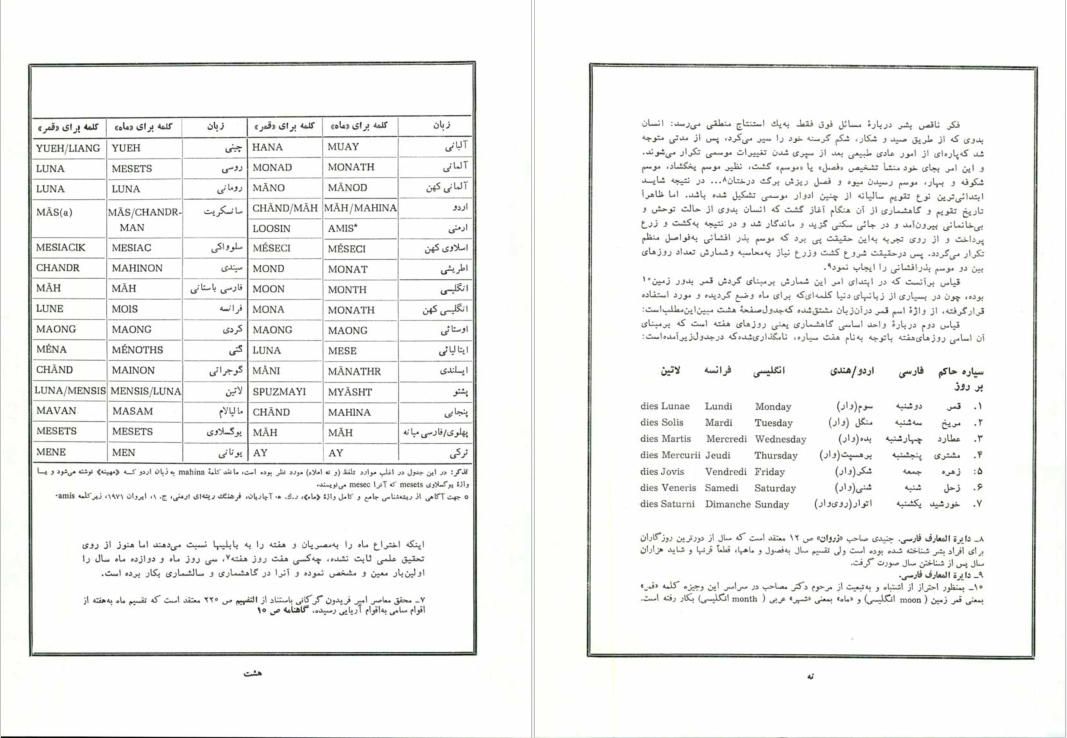 زبان کلمه برای «ماه» کلمه برای «قمر» زبان کلمه برای «ماه» کلمه برای «قمر»
آلبانی MUAY HANA چینی YUEH YUEH/LIANG
آلمانی MONATH MONAD روسی MESETS LUNA
آلمانی کهن MĀNOD MĀNO رومانی LUNA LUNA
اردو MĀH/MAHINA CHĀND/MĀH سانسکریت MĀS/CHANDR- MĀS(a)
ارمنی AMIS* LOOSIN MAN
اسلاوی کهن MÉSECI MÉSECI سلوواکی MESIAC MESIACIK
اطریشی MONAT MOND سیندی MAHINON CHANDR
انگلیسی MONTH MOON فارسی باستانی MĀH MĀH
انگلیسی کهن MONATH MONA فرانسه MOIS LUNE
اوستائی MAONG MAONG کردی MAONG MAONG
ایتالیائی MESE LUNA گتی MÉNOTHS MÉNA
ایسلندی MĀNATHR MĀNI گوجراتی MAINON CHĀND
پشتو MYĀSHT SPUZMAYI لاتین MENSIS/LUNA LUNA/MENSIS
پنجابی MAHINA CHĀND مالیالام MASAM MAVAN
پهلوی/فارسی میانه MĀH MĀH یوگسلاوی MESETS MESETS
ترکی AY AY یونانی MEN MENE
تذکر: در این جدول در اغلب موارد تلفظ (و نه املاء) مورد نظر بوده است، مانند کلمهٔ mahina به زبان اردو کسه «مهینه» نوشته می‌شود و یسا
واژهٔ یوگسلاوی mesets که آنرا mesec می‌نویسند.
٥ جهت آگاهی از ریشه‌شناسی جامع و کامل واژهٔ «ماه»، ر.ک. ه. آجاریان، فرهنگ ریشه‌ای ارمنی، ج. ۱، ایروان ۱۹۷۱، زیرکلمه amis.
اینکه اختراع ماه را به‌مصریان و هفته را به بابلیها نسبت می‌دهند اما هنوز از روی
تحقیق علمی ثابت نشده، چه‌کسی هفت روز هفته۷، سی روز ماه و دوازده ماه سال را
اولین‌بار معین و مشخص نموده و آنرا در گاهشماری و سالشماری بکار برده است.
۷ـ محقق معاصر امیر فریدون گرکانی باستناد از التفهیم ص ۲۲۰ معتقد است که تقسیم ماه به‌هفته از
اقوام سامی به‌اقوام آریایی رسیده. گاهنامه ص ۱۰
هشت
فکر ناقص بشر دربارهٔ مسائل فوق فقط به‌یك استنتاج منطقی می‌رسد: انسان
بدوی که از طریق صید و شکار، شکم گرسنه خود را سیر می‌کرد، پس از مدتی متوجه
شد که‌پاره‌ای از امور عادی طبیعی بعد از سپری شدن تغییرات موسمی تکرار می‌شوند.
و این امر بجای خود منشأ تشخیص «فصل» یا «موسم» گشت، نظیر موسم یخگشاد، موسم
شکوفه و بهار، موسم رسیدن میوه و فصل ریزش برگ درختان۸... در نتیجه شایسد
ابتدائی‌ترین نوع تقویم سالیانه از چنین ادوار موسمی تشکیل شده باشد. اما ظاهراً
تاریخ تقویم و گاهشماری از آن هنگام آغاز گشت که انسان بدوی از حالت توحش و
بی‌خانمانی بیرون‌آمد و در جائی سکنی گزید و ماندگار شد و در نتیجه به‌کشت و زرع
پرداخت و از روی تجربه به‌این حقیقت پی برد که موسم بذر افشانی به‌فواصل منظم
تکرار می‌گردد. پس درحقیقت شروع کشت وزرع نیاز به‌محاسبه وشمارش تعداد روزهای
بین دو موسم بذرافشانی را ایجاب نمود۹.
قیاس برآنست که در ابتدای امر این شمارش برمبنای گردش قمر بدور زمین۱۰
بوده، چون در بسیاری از زبانهای دنیا کلمه‌ای‌که برای ماه وضع گردیده و مورد استفاده
قرارگرفته، از واژهٔ اسم قمر درآن‌زبان مشتق‌شده که‌جدول‌صفحهٔ هشت مبین‌این‌مطلب‌است:
قیاس دوم دربارهٔ واحد اساسی گاهشماری یعنی روزهای هفته است که برمبنای
آن اسامی روزهای‌هفته باتوجه به‌نام هفت سیاره، نامگذاری‌شده‌که درجدول‌زیرآمده‌است:
سیاره حاکم فارسی اردو/هندی انگلیسی فرانسه لاتین
بر روز
۱. قمر دوشنبه سوم(وار) Monday Lundi dies Lunae
۲. مریخ سه‌شنبه منگل (وار) Tuesday Mardi dies Solis
۳. عطارد چهارشنبه بده(وار) Wednesday Mercredi dies Martis
۴. مشتری پنجشنبه برهسپت(وار) Thursday Jeudi dies Mercurii
۵: زهره جمعه شکر(وار) Friday Vendredi dies Jovis
۶. زحل شنبه شنی(وار) Saturday Samedi dies Veneris
۷. خورشید یکشنبه اتوار(روی‌وار) Sunday Dimanche dies Saturni
۸ـ دایرة المعارف فارسی. جنیدی صاحب «زروان» ص ۱۲ معتقد است که سال از دورترین روزگاران
برای افراد بشر شناخته شده بوده است ولی تقسیم سال به‌فصول و ماهها، قطعاً قرنها و شاید هزاران
سال پس از شناختن سال صورت گرفت.
۹ـ دایرة المعارف فارسی.
۱۰ـ بمنظور احتراز از اشتباه و به‌تبعیت از مرحوم دکتر مصاحب در سراسر این وجیزه کلمه «قمر»
بمعنی قمر زمین (moon انگلیسی) و «ماه» بمعنی «شهر» عربی (month انگلیسی) بکار رفته است.
نه